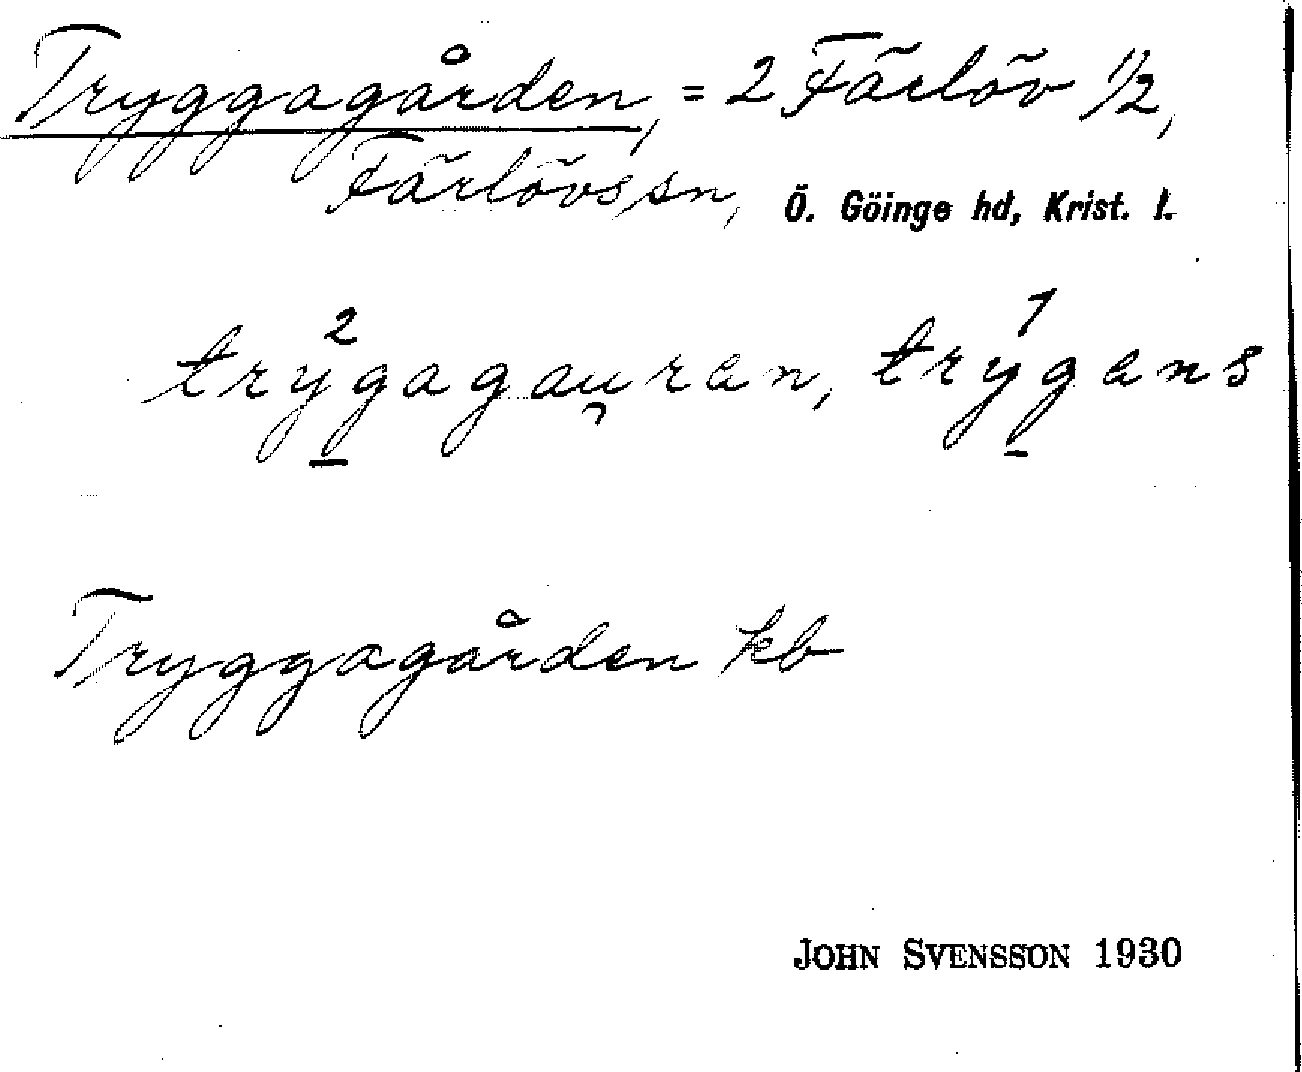 Tryggagården, = 2 Färlöv 1/2,
Färlövs sn, Ö. Göinge hd, Krist. l.
trýgagau̯ran, trýgans
Tryggagården kb
JOHN SVENSSON 1930